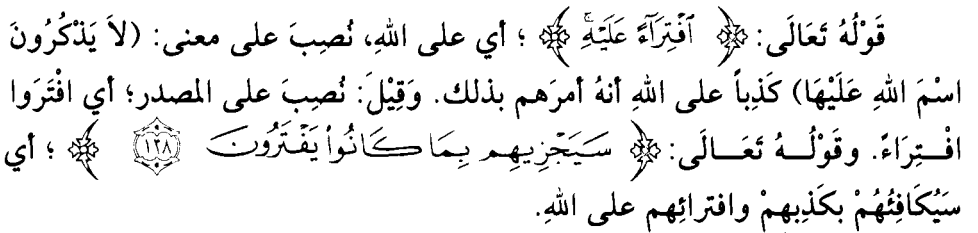 قَوْلُهُ تَعَالَى: ﴿ ٱفْتِرَآءً عَلَيْهِ ۚ ﴾ ؛ أي على اللهِ، نُصِبَ على معنى: (لاَ يَذْكُرُونَ
اسْمَ اللهِ عَلَيْهَا) كَذِباً على اللهِ أنهُ أمرَهم بذلك. وَقِيْلَ: نُصِبَ على المصدر؛ أي افْتَرَوا
افْـتِرَاءً. وقَوْلُـهُ تَعَـالَى: ﴿ سَيَجْزِيهِم بِمَا كَانُوا۟ يَفْتَرُونَ ١٣٨ ﴾ ؛ أي
سَيُكَافِئُهُمْ بكَذِبهِمْ وافترائِهم على اللهِ.